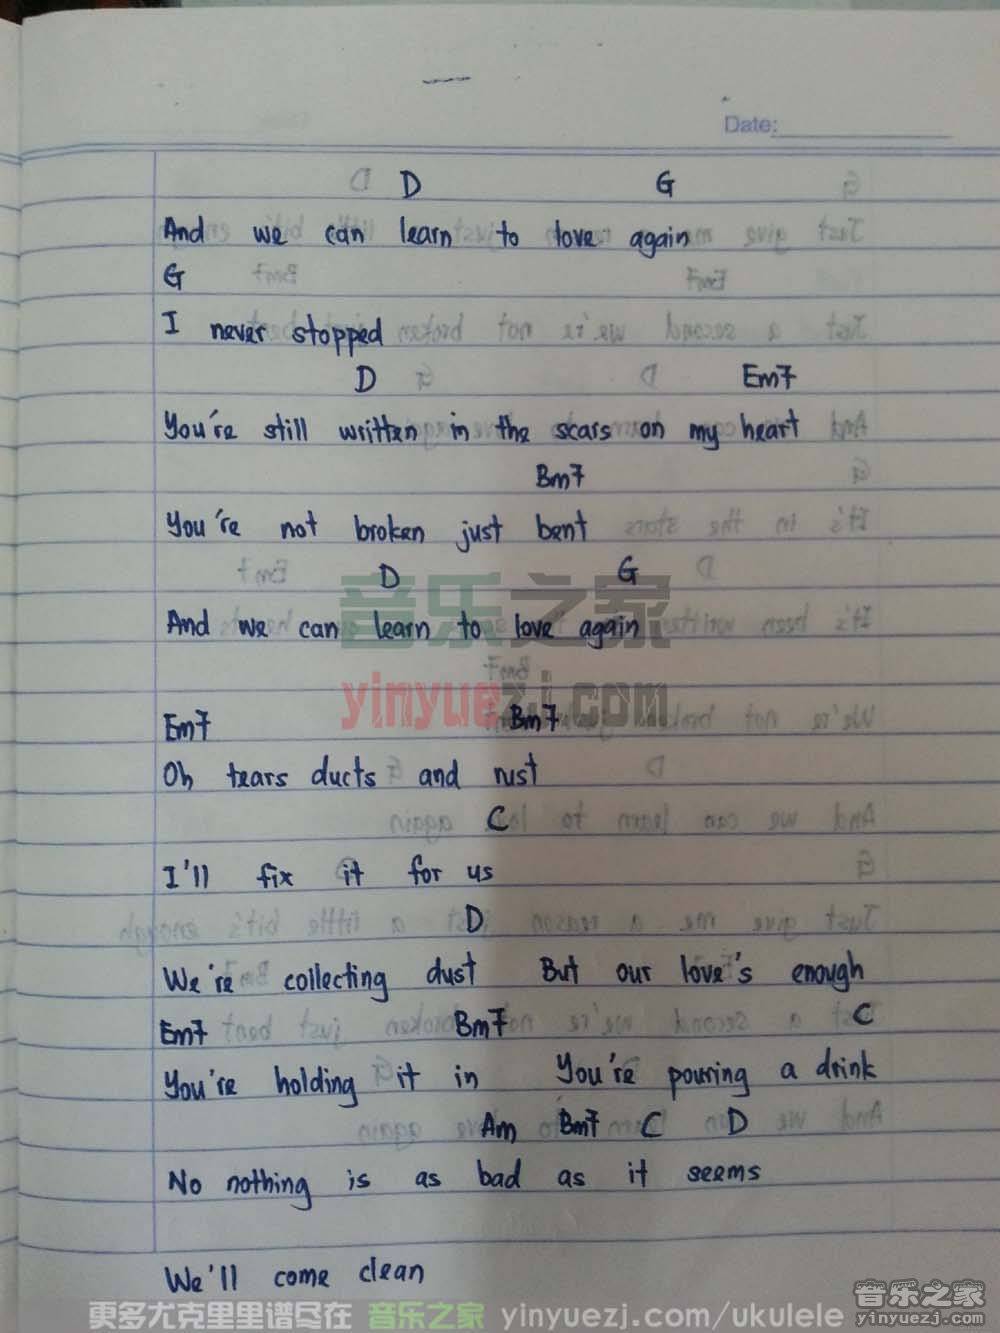 Date:
D G
And we can learn to love again
G
I never stopped
D Em7
You're still written in the scars on my heart
Bm7
You're not broken just bent
D G
And we can learn to love again
音乐之家
yinyuezj.com
Em7 Bm7
Oh tears ducts and rust
C
I'll fix it for us
D
We're collecting dust But our love's enough
Em7 Bm7 C
You're holding it in You're pouring a drink
Am Bm7 C D
No nothing is as bad as it seems
We'll come clean
更多尤克里里谱尽在 音乐之家 yinyuezj.com/ukulele
音乐之家
yinyuezj.com